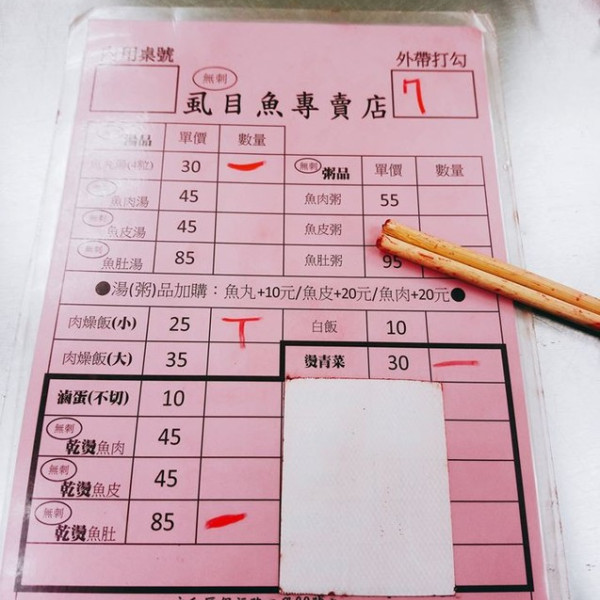 內用桌號
外帶打勾
無刺
7
虱目魚專賣店
湯品 單價 數量
無刺 粥品 單價 數量
魚丸湯(4粒) 30 一
魚肉粥 55
無刺 魚肉湯 45
魚皮粥
無刺 魚皮湯 45
魚肚粥 95
無刺 魚肚湯 85
●湯(粥)品加購：魚丸+10元/魚皮+20元/魚肉+20元●
肉燥飯(小) 25 T
白飯 10
肉燥飯(大) 35
燙青菜 30 一
滷蛋(不切) 10
無刺 乾燙魚肉 45
無刺 乾燙魚皮 45
無刺 乾燙魚肚 85 一